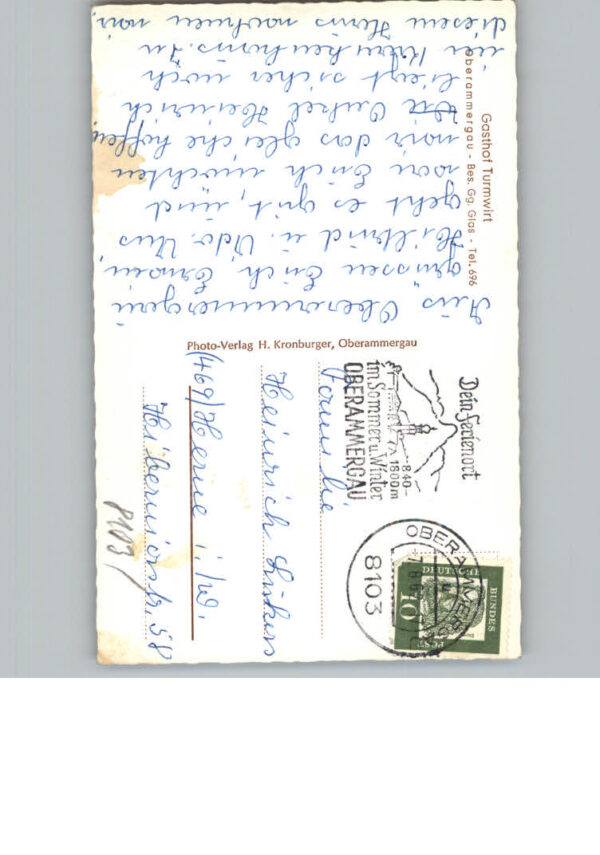 Gasthof Turmwirt
Oberammergau - Bes. Gg. Glas - Tel. 696
Aus Oberammergau
grüssen Euch Erwin
Hiltrud u. Udo. Uns
geht es gut, und
von Euch möchten
wir das gleiche hoffen
Onkel Heinrich
liegt sicher noch
im Krankenhaus. In
diesem Haus wohnen wir
Photo-Verlag H. Kronburger, Oberammergau
Dein Ferienort
840-
1800m
im Sommer u. Winter
OBERAMMERGAU
OBERAMMERGAU
8103
DEUTSCHE
BUNDES
POST
10
Familie
Heinrich
(469) Herne i. /W.
Hiberniastr. 58
8103/